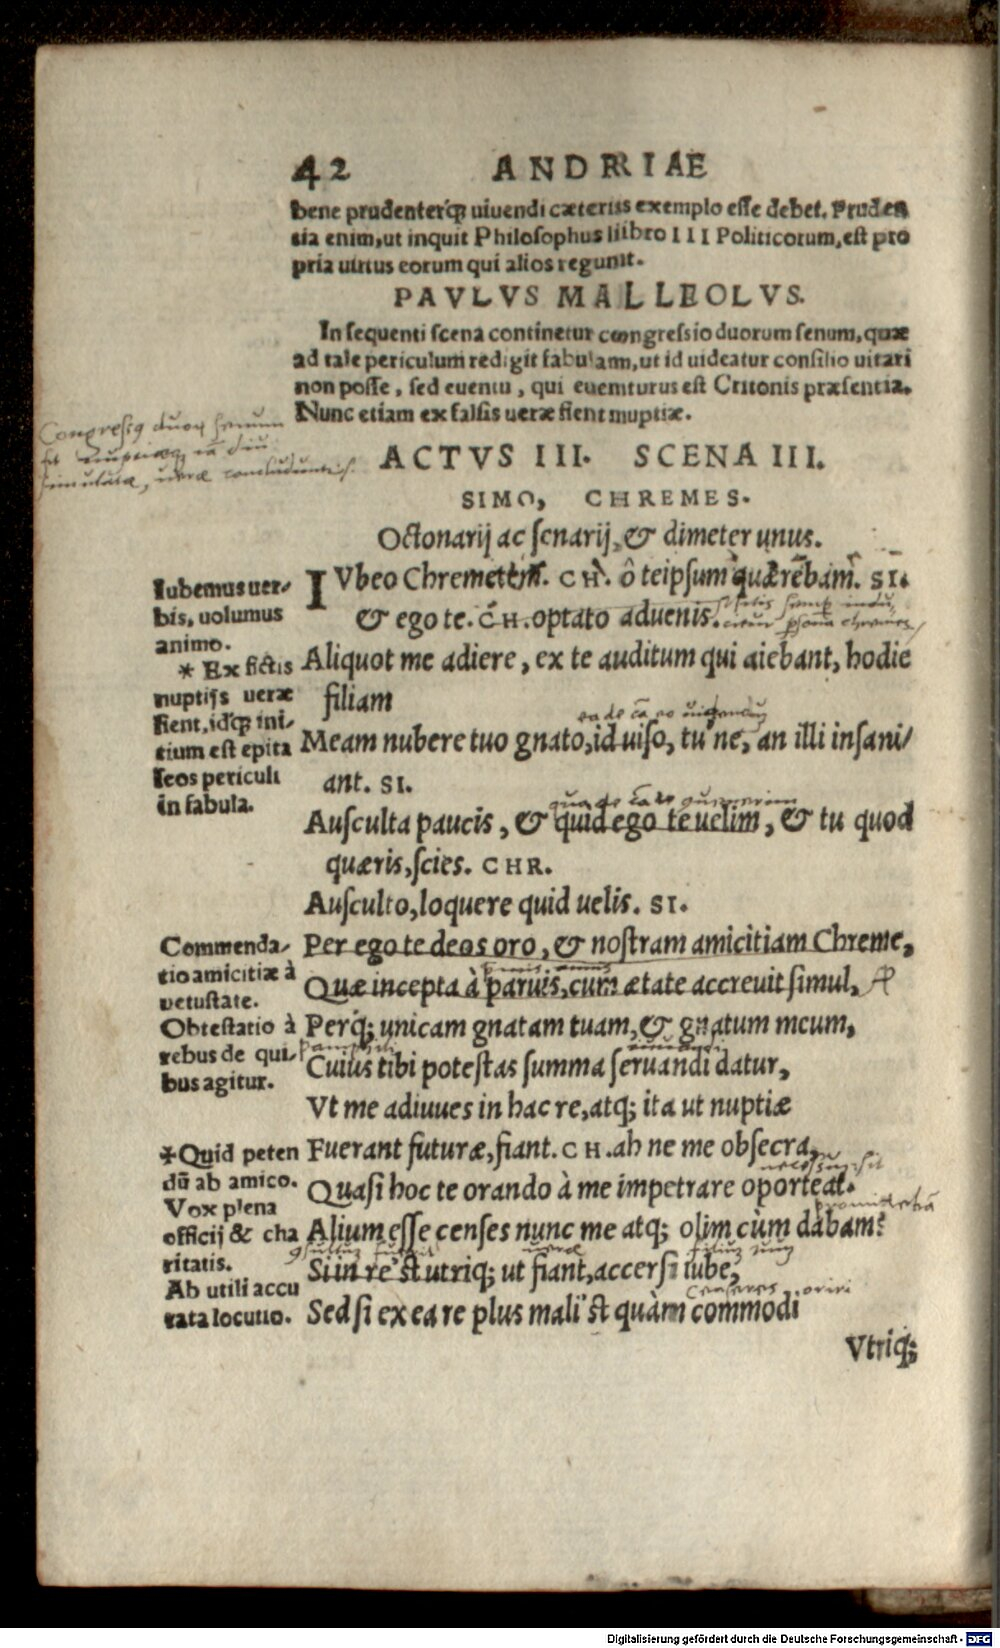 42 ANDRIAE
bene prudenterq́; uiuendi cæteris exemplo esse debet. Pruden
tia enim, ut inquit Philosophus libro III Politicorum, est pro
pria uirtus eorum qui alios regunt.
PAVLVS MALLEOLVS.
In sequenti scena continetur congressio duorum senum, quæ
ad tale periculum redigit fabulam, ut id uideatur consilio uitari
non posse, sed euentu, qui euenturus est Critonis præsentia.
Nunc etiam ex falsis ueræ fient nuptiæ.
ACTVS III. SCENA III.
SIMO, CHREMES.
Octonarij ac senarij, & dimeter unus.
IVbeo Chremetem. CH. ô teipsum quærebam. SI.
& ego te. CH. optato aduenis.
Aliquot me adiere, ex te auditum qui aiebant, hodie
filiam
Meam nubere tuo gnato, id uiso, tu ne, an illi insani/
ant. SI.
Ausculta paucis, & quid ego te uelim, & tu quod
quæris, scies. CHR.
Ausculto, loquere quid uelis. SI.
Per ego te deos oro, & nostram amicitiam Chreme,
Quæ incepta à paruis, cum ætate accreuit simul,
Perq́; unicam gnatam tuam, & gnatum meum,
Cuius tibi potestas summa seruandi datur,
Vt me adiuues in hac re, atq; ita ut nuptiæ
Fuerant futuræ, fiant. CH. ah ne me obsecra,
Quasi hoc te orando à me impetrare oporteat.
Alium esse censes nunc me atq; olim cùm dabam?
Si in re'st utriq; ut fiant, accersi iube,
Sed si ex ea re plus mali'st quàm commodi
Vtriq;
Iubemus uer/
bis, uolumus
animo.
* Ex fictis
nuptijs ueræ
fient, idq́; ini/
tium est epita
seos periculi
in fabula.
Commenda/
tio amicitiæ à
vetustate.
Obtestatio à
rebus de qui/
bus agitur.
*Quid peten
dū ab amico.
Vox plena
officij & cha
ritatis.
Ab utili accu
rata locutio.
Digitalisierung gefördert durch die Deutsche Forschungsgemeinschaft - DFG